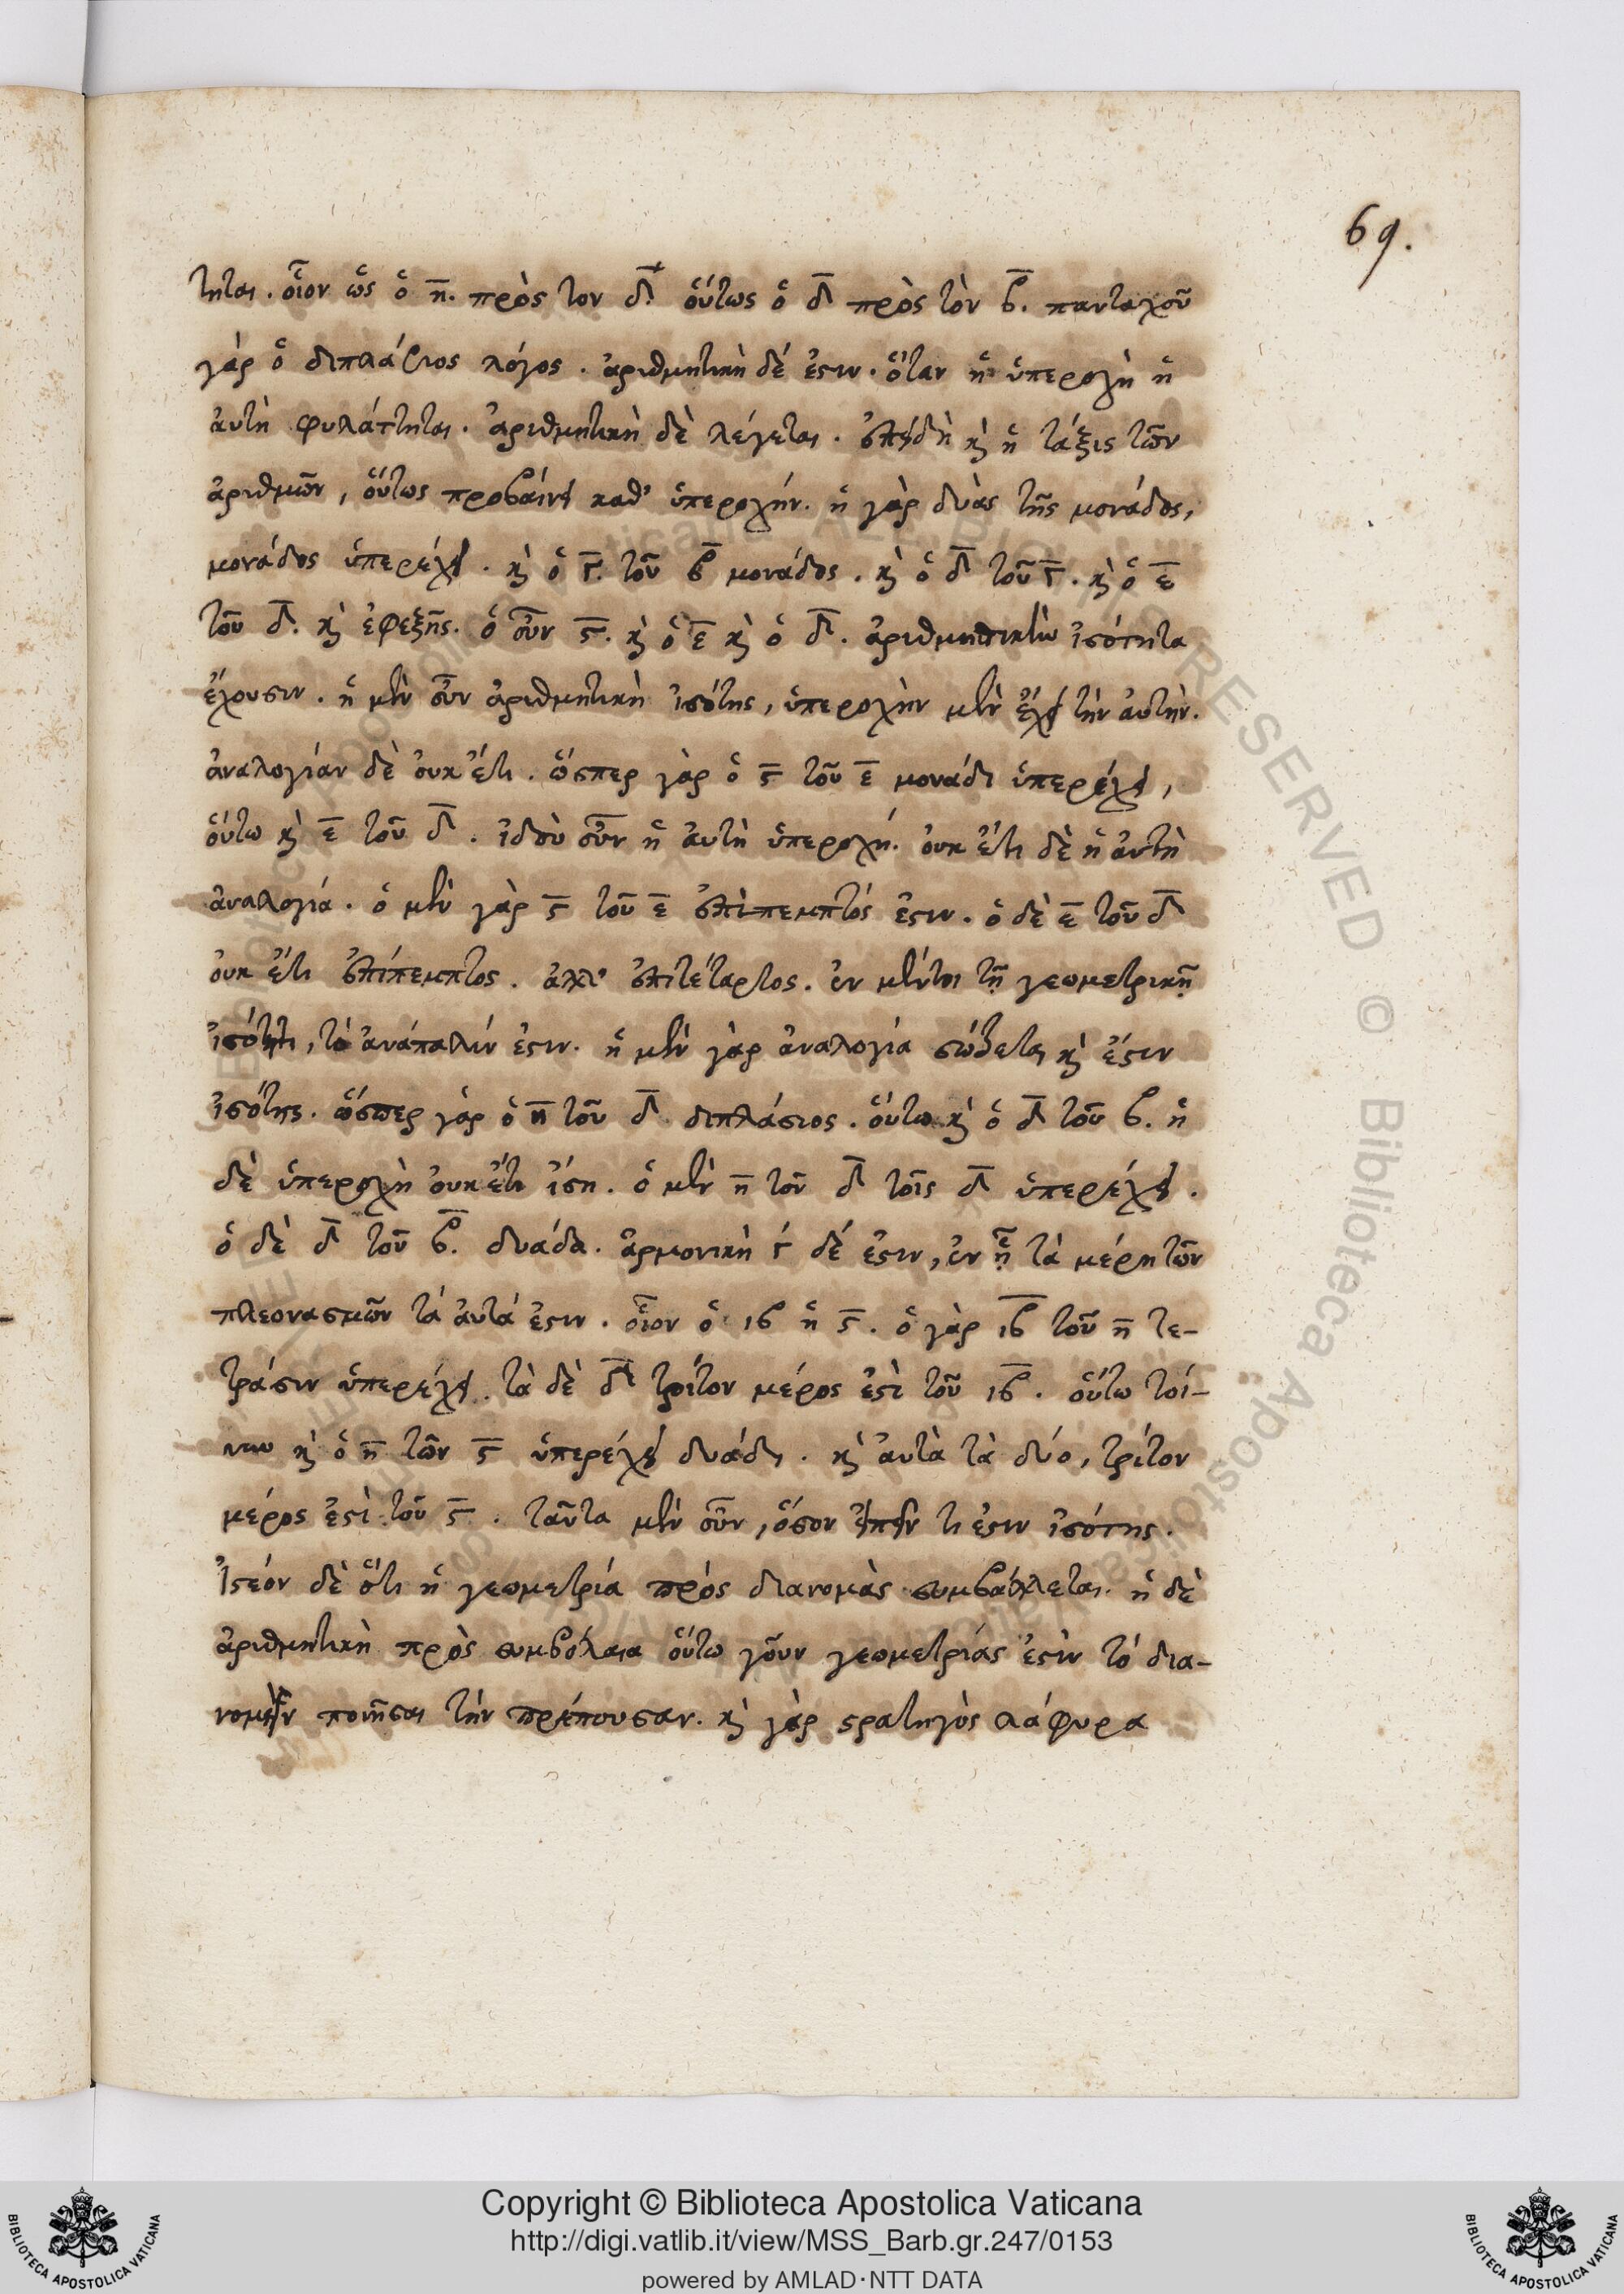 69.
τηται. οἷον ὡς ὁ η̅. πρὸς τον δ̅. οὕτως ὁ δ̅ πρὸς τὸν β̅. πανταχοῦ
γὰρ ὁ διπλάσιος λόγος. ἀριθμητικὴ δέ ἐστιν. ὅταν ἡ ὑπεροχὴ ἡ
ἀυτὴ φυλάττηται. ἀριθμητικὴ δὲ λέγεται. ἐπειδὴ κὶ ἡ τάξις τῶν
ἀριθμῶν, οὕτως προβαίνει καθ' ὑπεροχήν. ἡ γὰρ δυὰς τῆς μονάδος,
μονάδος ὑπερέχει. κὶ ὁ γ̅. τοῦ β̅ μονάδος. κὶ ὁ δ̅ τοῦ γ̅. κὶ ὁ ε̅
τοῦ δ̅. κὶ ἐφεξῆς. ὁ οὖν ϛ̅. κὶ ὁ ε̅ κὶ ὁ δ̅. ἀριθμητικὴν ἰσότητα
ἔχουσιν. ἡ μὲν οὖν ἀριθμητικὴ ἰσότης, ὑπεροχὴν μὲν ἔχει τὴν ἀυτὴν.
ἀναλογίαν δὲ ὀυκ έτι. ὥσπερ γὰρ ὁ ϛ̅ τοῦ ε̅ μονάδι ὑπερέχει,
οὕτω κὶ ε̅ τοῦ δ̅. ἰδοὺ οὖν ἡ ἀυτὴ ὑπεροχή. ὀυκ έτι δὲ ἡ ἀυτὴ
ἀναλογία. ὁ μὲν γὰρ ϛ̅ τοῦ ε̅ ἐπὶπεμπτός ἐστιν. ὁ δὲ ε̅ τοῦ δ̅
ὀυκ έτι ἐπίπεμπτος. ἀλλ' ἐπιτέταρτος. ἐν μέντοι τῇ γεωμετρικῇ
ἰσότητι, τὸ ἀνάπαλιν ἐστιν. ἡ μὲν γὰρ ἀναλογία σώζεται κὶ ἔστιν
ἰσότης. ὥσπερ γὰρ ὁ η̅ τοῦ δ̅ διπλάσιος. οὕτω κὶ ὁ δ̅ τοῦ β. ἡ
δὲ ὑπεροχὴ ὀυκ έτι ἴση. ὁ μὲν η̅ τοῦ δ̅ τοῖς δ̅ ὑπερέχει.
ὁ δὲ δ̅ τοῦ β̅. δυάδα. ἁρμονικὴ δέ ἐστιν, ἐν ᾗ τὰ μέρη τῶν
πλεονασμῶν τὰ ἀυτά ἐστιν. οἷον ὁ ιβ η ϛ̅. ὁ γὰρ ι̅β̅ τοῦ η̅ τε-
τράσιν ὑπερέχει. τὰ δὲ δ̅ τρίτον μέρος ἐστὶ τοῦ ιβ̅. οὕτω τοί-
νυν κὶ ὁ η̅ τῶν ϛ̅ ὑπερέχει δυάδι. κὶ ἀυτὰ τὰ δύο, τρίτον
μέρος ἐστὶ τοῦ ϛ̅. ταῦτα μὲν οὖν, ὅσον εἰπεῖν τι ἐστιν ἰσότης.
Ἰστέον δὲ ὅτι ἡ γεωμετρία πρός διανομὰς συμβάλλεται. ἡ δὲ
ἀριθμητικὴ πρὸς συμβόλαια οὕτω γοῦν γεωμετρίας ἐστὶν τὸ δια-
νομὴν ποιῆσαι τὴν πρέπουσαν. κὶ γὰρ στρατηγὸς λάφυρα
Copyright © Biblioteca Apostolica Vaticana
http://digi.vatlib.it/view/MSS_Barb.gr.247/0153
powered by AMLAD·NTT DATA